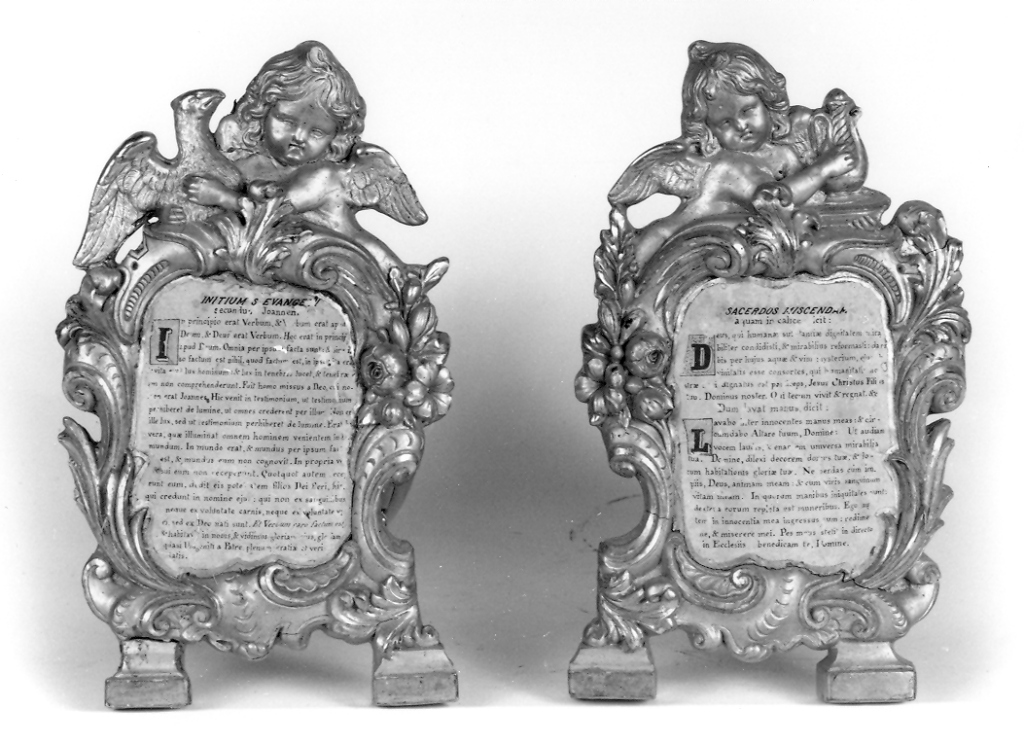 INITIUM S EVANGE
Joannen.
In principio erat Verbum, & bum erat ap
Deum, & Deus erat Verbum. Hoc erat in princip
apud Deum. Omnia per ipsum facta sunt: &
so factum est nihil, quod factum est, in ipso
vita hominum: & lux in tenebris lucet, & tenebræ
non comprehenderunt. Fuit homo missus a Deo, cui no-
men erat Joannes. Hic venit in testimonium, ut testimonium
perhiberet de lumine, ut omnes crederent per illum. Non er
ille lux, sed ut testimonium perhiberet de lumine. Erat
vera, quæ illuminat omnem hominem venientem in
mundum. In mundo erat, & mundus per ipsum fac
est, & mundus eum non cognovit. In propria v
sui eum non receperunt. Quotquot autem rece
eum, dedit eis pote tem filios Dei fieri, his
qui credunt in nomine ejus; qui non ex sanguinibus
neque ex voluntate carnis, neque ex voluntate v
sed ex Deo nati sunt. Et Verbum caro factum est
& habitavit in nobis, & vidimus gloriam ejus, gloriam
quasi Unigeniti a Patre, plenum gratiæ et veri
tatis.
SACERDOS MISCENDA
aquam in calice dicit:
Deus, qui humanæ substantiæ dignitatem mira
biliter condidisti, & mirabilius reformasti: da
bis per hujus aquæ & vini mysterium, ejus
vinitatis esse consortes, qui humanitatis
stræ fieri dignatus est particeps, Jesus Christus Fili
Dominus noster. Qui tecum vivit & regnat. &
Dum lavat manus, dicit:
Lavabo inter innocentes manus meas: & cir-
cumdabo Altare tuum, Domine: Ut audiam
vocem laudis, & enarrem universa mirabilia
tua. Domine, dilexi decorem domus tuæ, & lo-
cum habitationis gloriæ tuæ. Ne perdas cum im-
piis, Deus, animam meam: & cum viris sanguinum
vitam meam: In quorum manibus iniquitates sunt:
dextera eorum repleta est muneribus. Ego au
tem in innocentia mea ingressus sum: redime
me, & miserere mei. Pes meus stetit in directo
in Ecclesiis benedicam te, Domine.